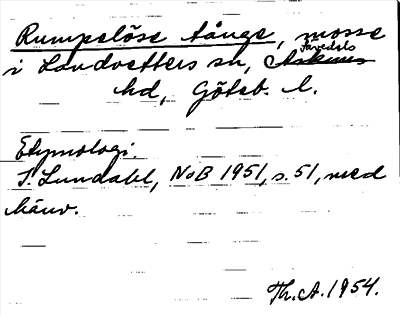 Rumpelöse tånge, mosse
i Landvetters sn, Sävedals
hd, Göteb. l.
Etymologi.
I. Lundahl, NoB 1951, s. 51, med
hänv.
Th. A. 1954.